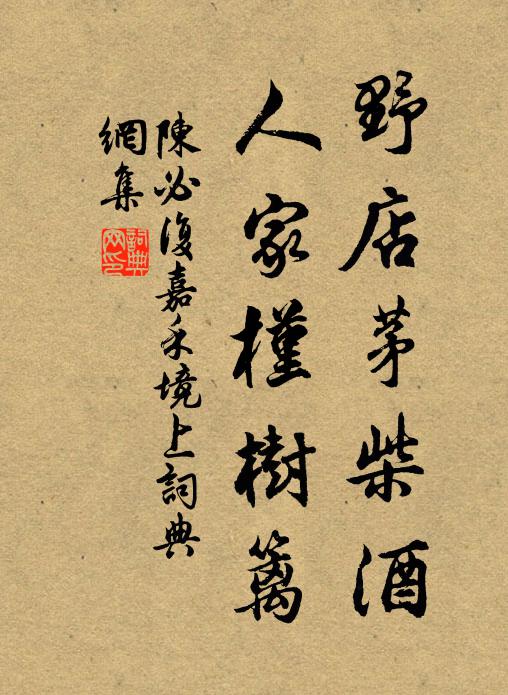 野店茅柴酒
人家槿樹籬
陳必復嘉禾境上詞典
網集
詞典網印